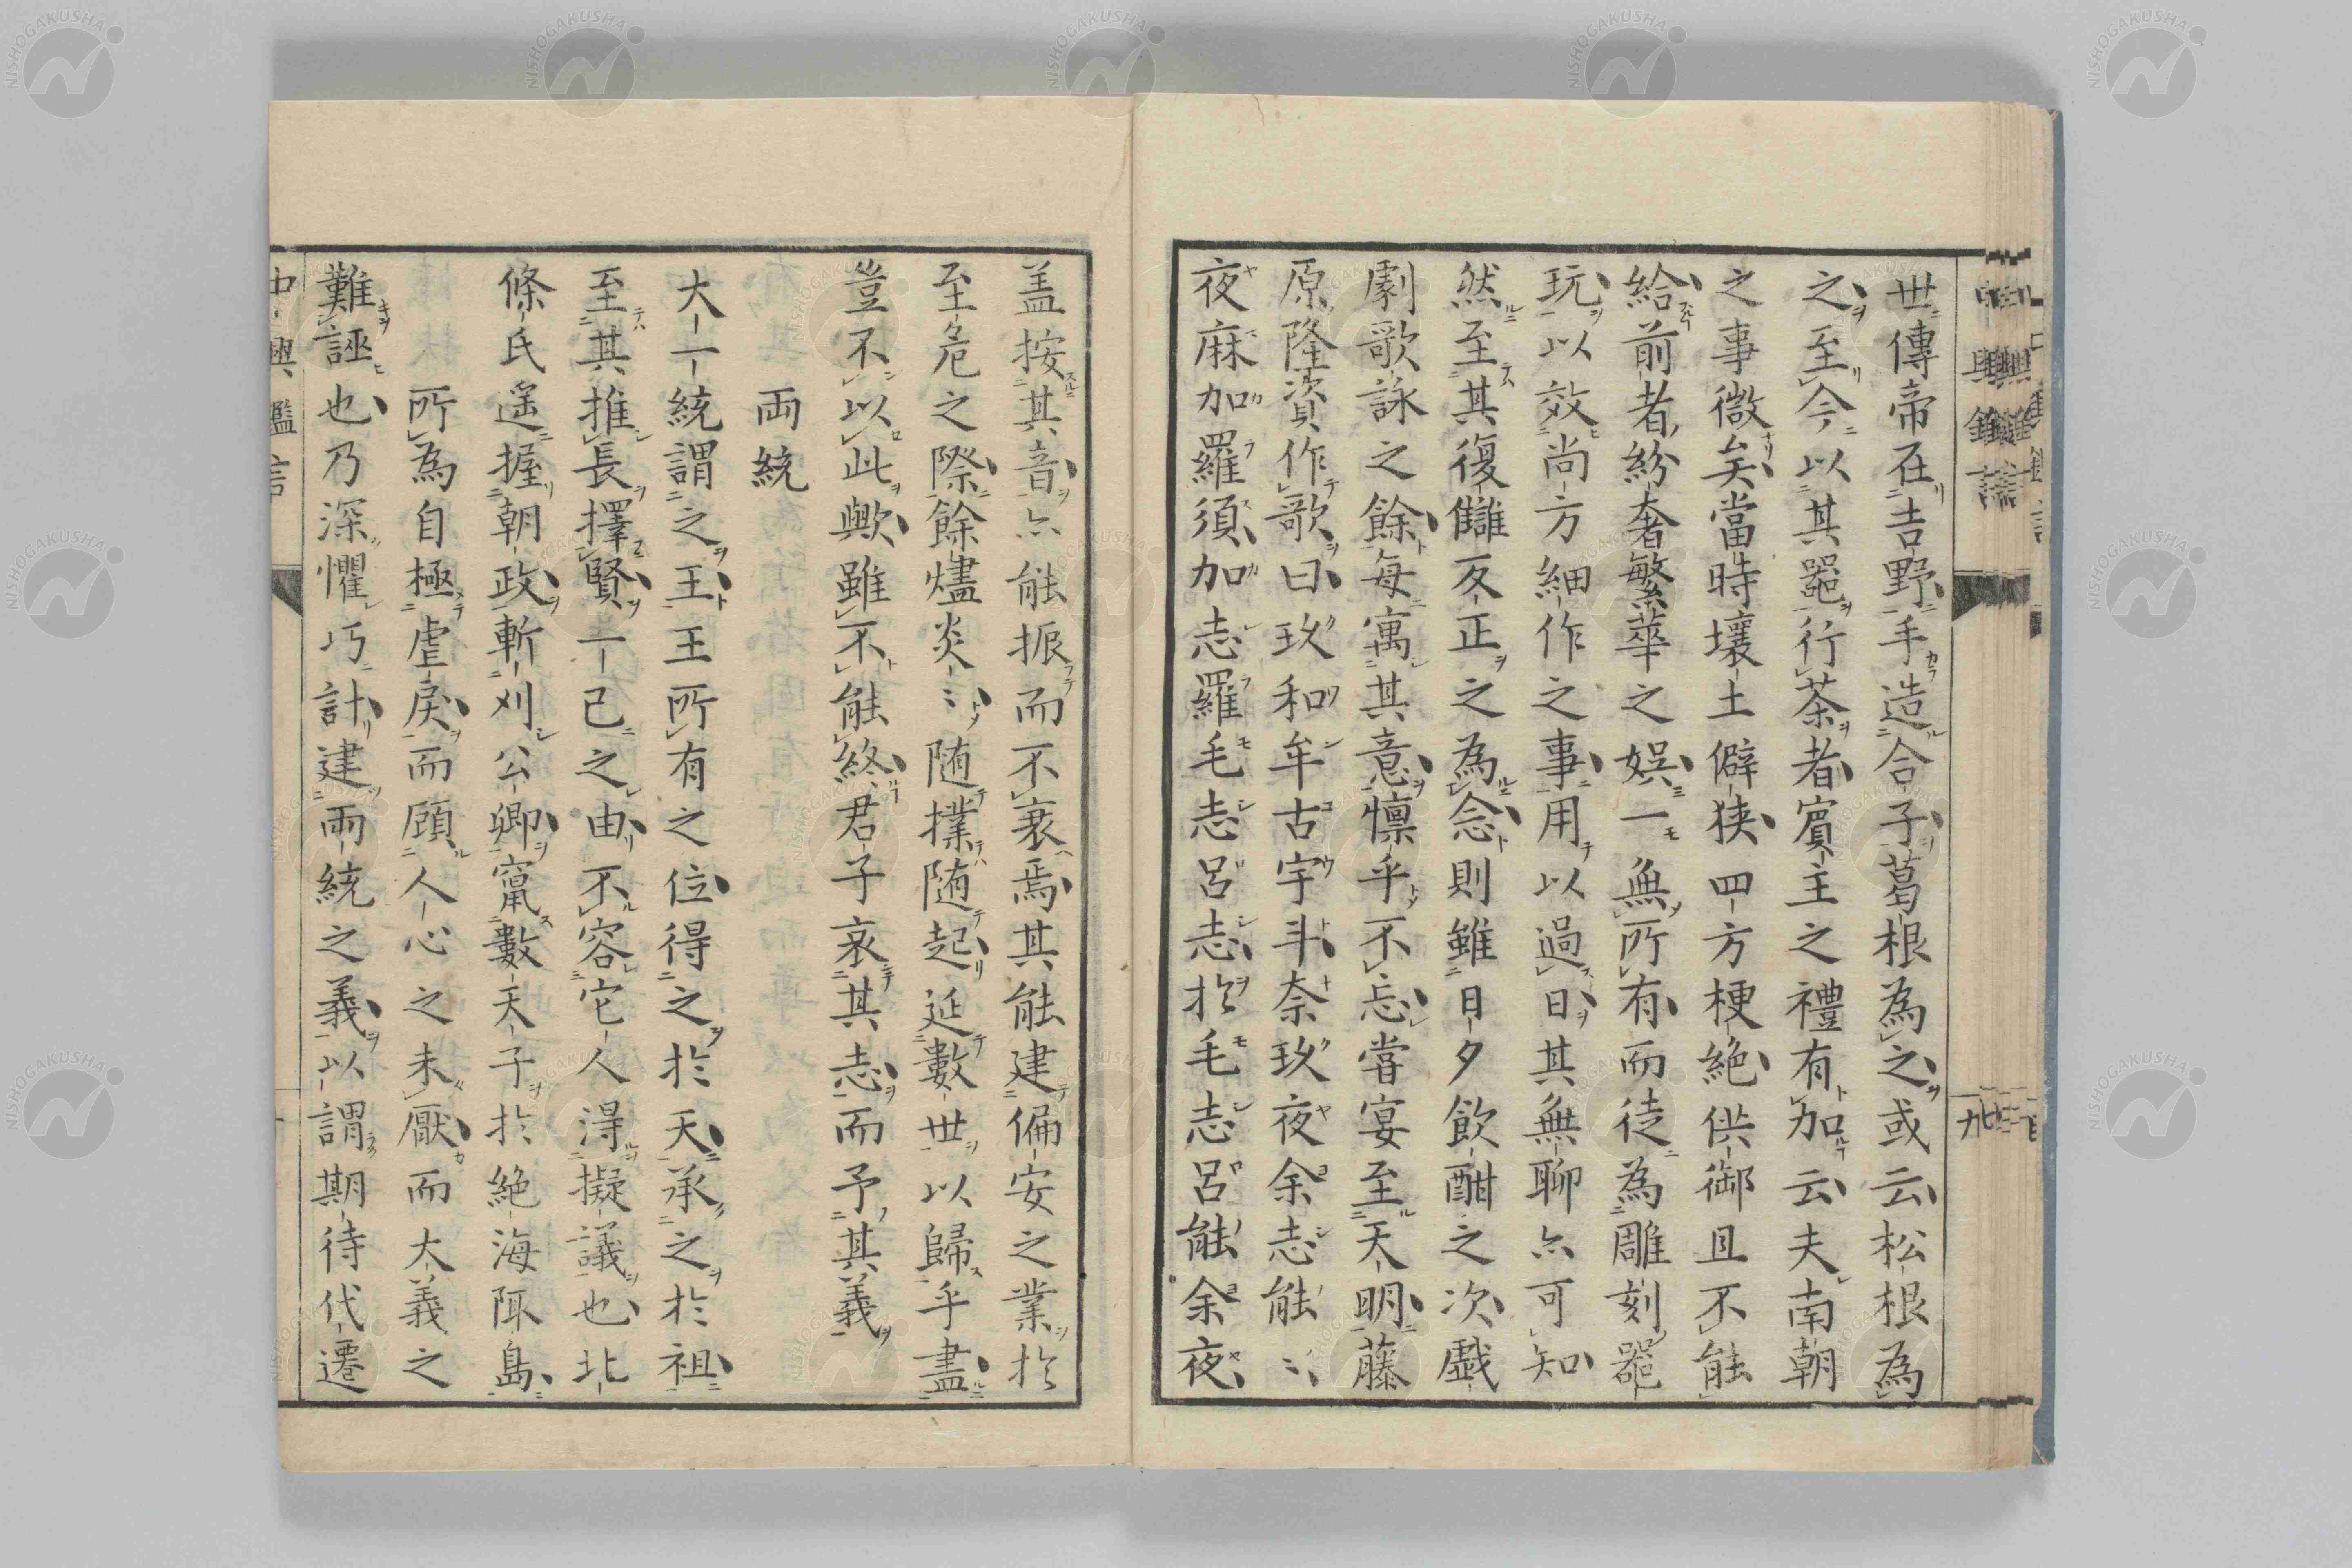 世傳帝在吉野手造合子葛根為之或云松根為
之至今以其噐行茶者賓主之禮有加云夫南朝
之事微矣當時壤土僻狭四方梗絶供御且不能
給前者紛奢繁華之娯一無所有而徒為雕刻噐
玩以效尚方細作之事用以過日其無聊亦可知
然至其復讎反正之為念則雖日夕飲酣之次戯
劇歌詠之餘每寓其意懍乎不忘嘗宴至天明藤
原隆資作歌曰玖和牟古宇斗奈玖夜余志能〻
夜麻加羅須加志羅毛志呂志於毛志呂能余夜
盖按其音亦能振而不衰焉其能建偏安之業於
至危之際餘燼炎〻随撲随起延數世以歸乎盡
豈不以此歟雖不能終君子哀其志而予其義
両統
大一統謂之王王所有之位得之於天承之於祖
至其推長擇賢一己之由不容它人得擬議也北
條氏遥握朝政斬刈公卿竄數天子於絶海陬島
所為自極虐戻而顧人心之未厭而大義之
難誣也乃深懼巧計建両統之義以謂期待代遷
中興鑑言